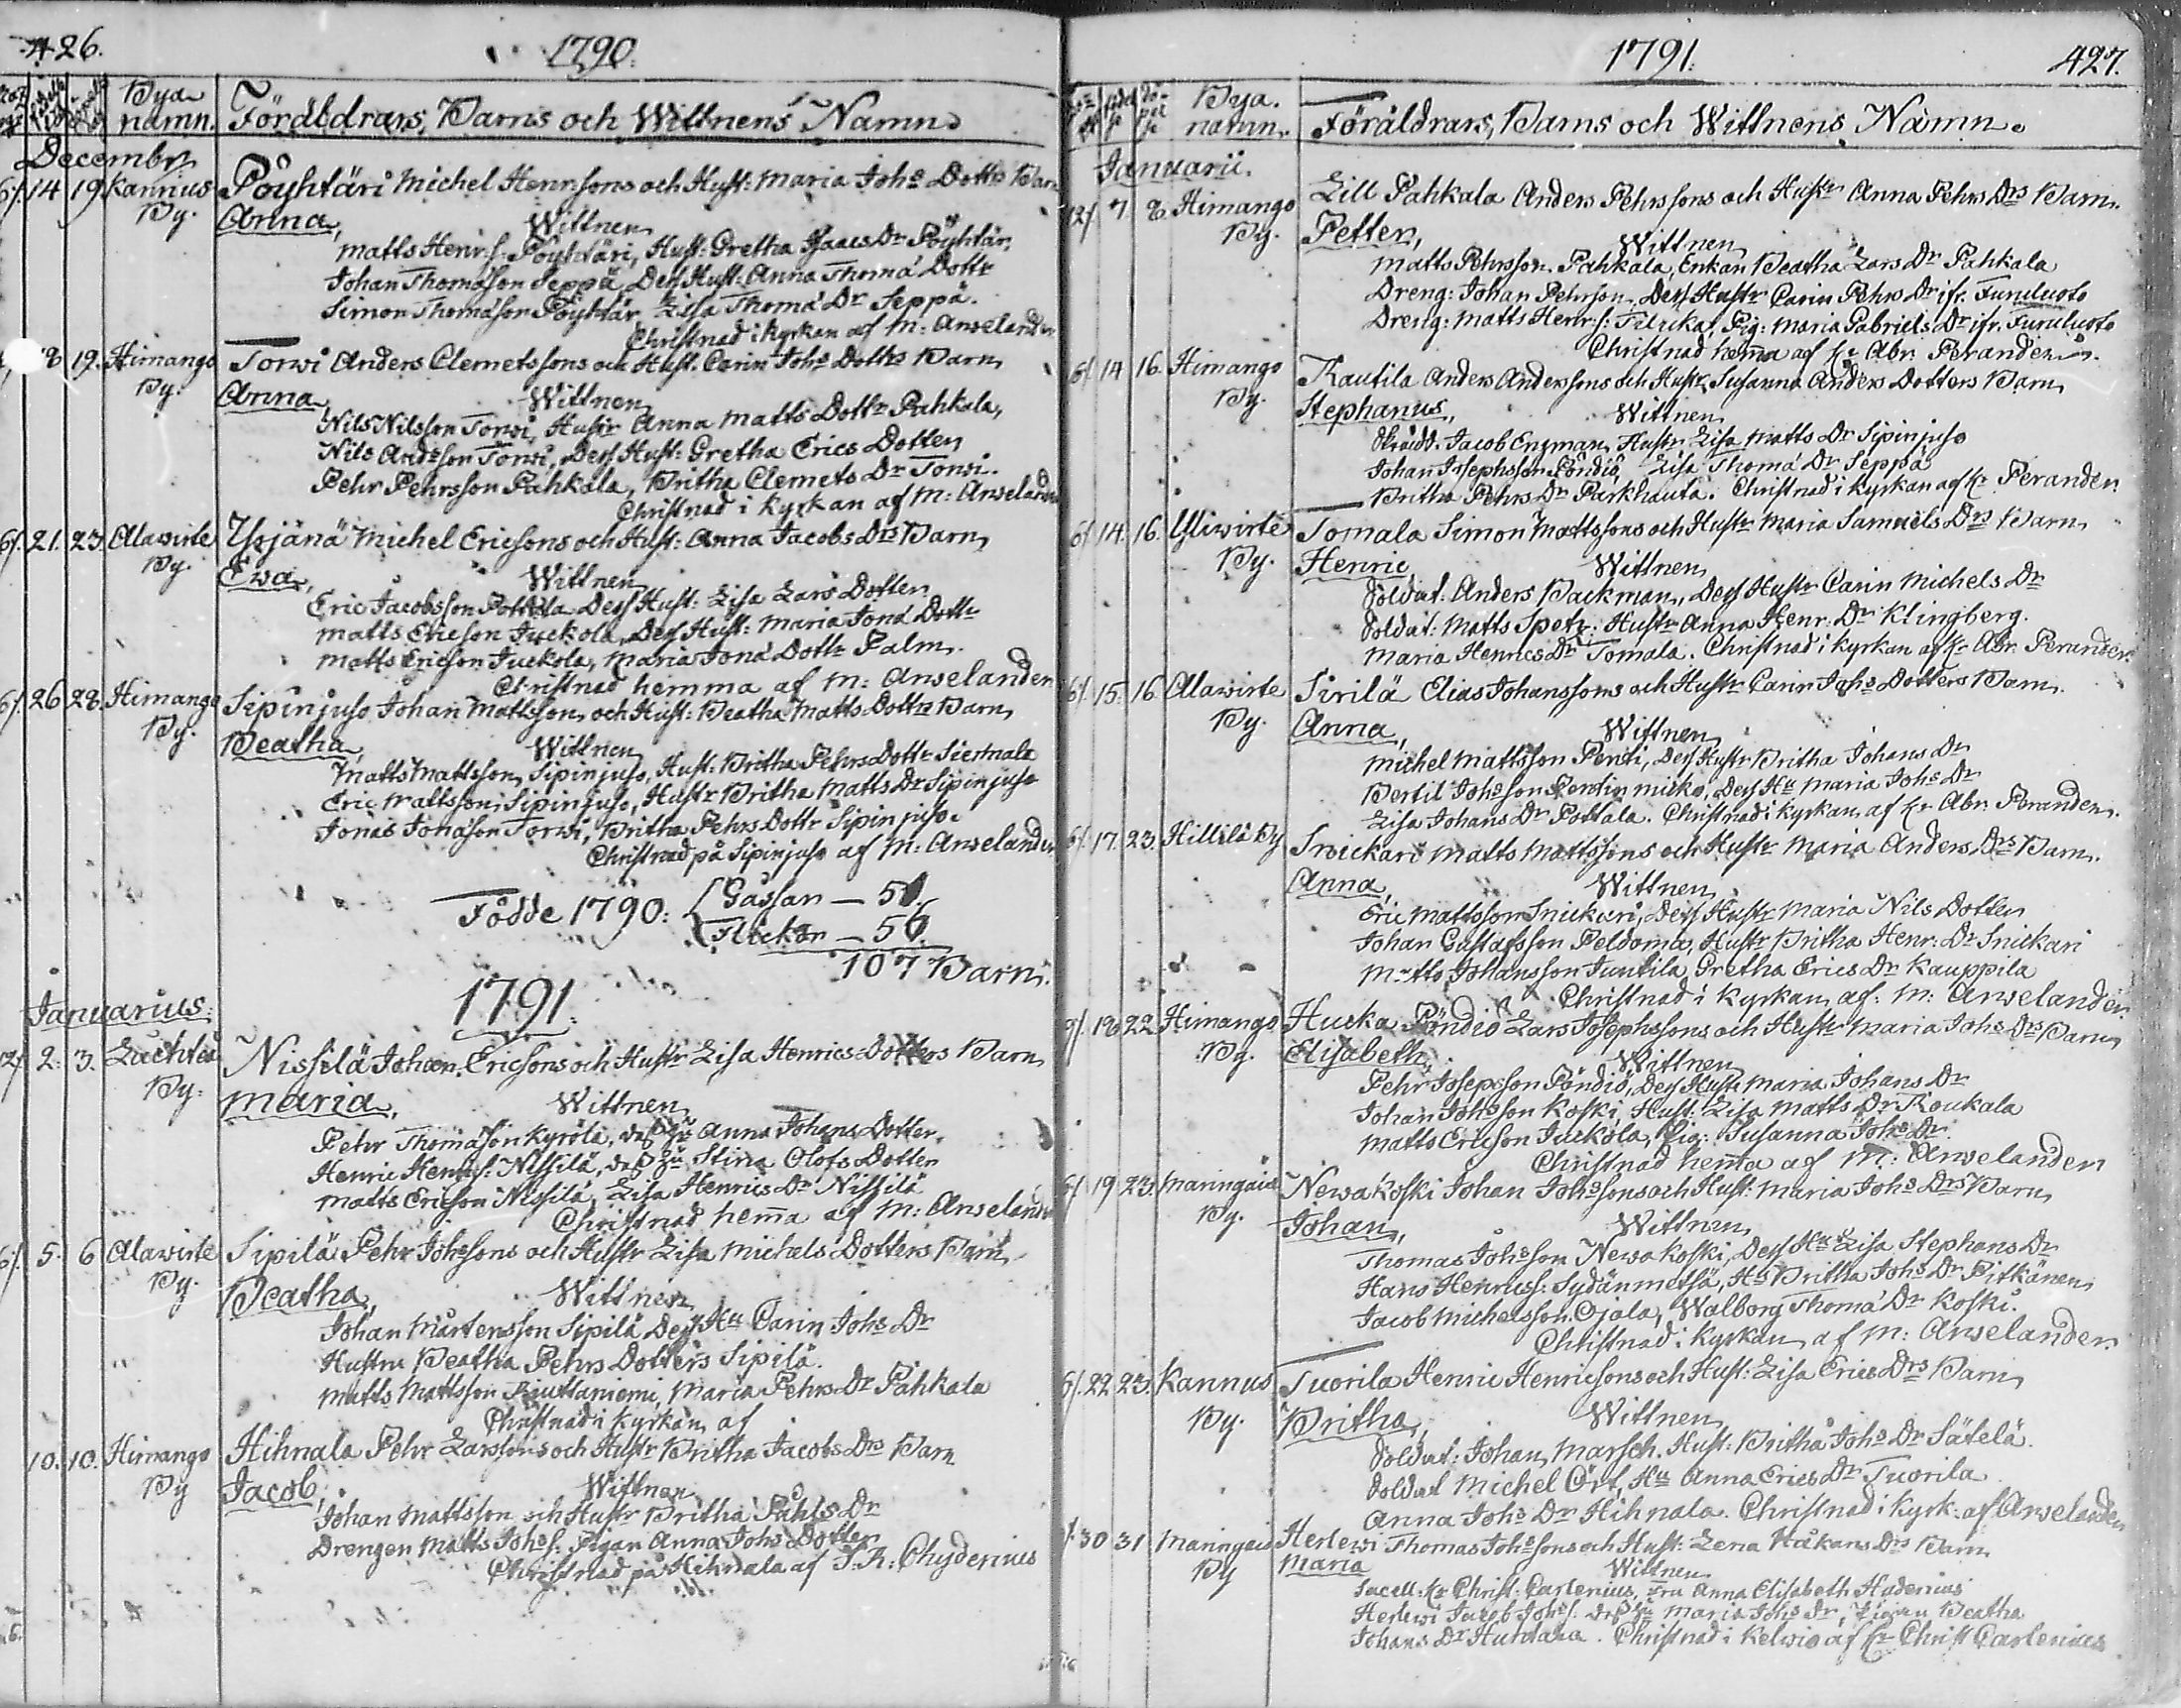 426.
1790.
Bya namn.
Föräldrars, Barns och Wittnens Namn
Decembr
6/. 14 19 Kannus By.
Pöyhtäri Michel Henrssons och Hust: Maria Johs Dotts Barn
Anna, Wittnen
Matts Henr: s: Pöyhtäri, Hust: Gretha Isaacs Dr Pöyhtär,
Johan Thomasson Seppä, Dess Hust: Anna Thomá Dottr
Simon Thomasson Pöyhtär, Lisa Thomá Dr Seppä.
Christnad i Kyrkan af M: Anselander
18 19. Himango By.
Torwi Anders Clemetssons och Hust. Carin Johs Dotts Barn
Anna, Wittnen
Nils Nilsson Torwi, Hustr Anna Matts Dottr Pahkala,
Nils Andsson Torwi, Dess Hust: Gretha Erics Dotter
Pehr Pehrsson Pahkala, Britha Clemets Dr Torwi.
Christnad i Kyrkan af M: Anselander
6/. 21. 23. Alawirte By.
Yrjänä Michel Ericsons och Hust: Anna Jacobs Drs Barn
Ewa, Wittnen
Eric Jacobsson Pottala Dess Hust: Lisa Lars Dotter
Matts Ericson Juckola, Dess Hust: Maria Joná Dottr
Matts Ericson Juckola, Maria Joná Dottr Palm.
Christnad hemma af M: Anselander
6/. 26 28. Himango By.
Sipinjuso Johan Mattsson och Hust: Beatha Matts Dottrs Barn
Beatha, Wittnen
Matts Mattsson, Sipinjuso, Hust: Britha Pehrs Dottr Siermala
Eric Mattsson, Sipinjuso, Hustr Britha Matts Dr Sipinjuso
Jonas Jonasson Torwi, Britha Pehrs Dottr Sipinjuso.
Christnad på Sipinjuso af M: Anselander
Födde 1790: Gåssar — 51.
Flickor — 56.
107 Barn.
1791.
Januarius:
12/ 2. 3. Luchtis By.
Nissilä Johan Ericsons och Hustr Lisa Henrics Dotters Barn
Maria, Wittnen
Pehr Thomasson Kyrölä, dess Hu Anna Johans Dotter.
Henric Henrs: Nissilä, dess Hu Stina Olofs Dotter
Matts Ericson Nissilä, Lisa Henrics Dr Nissilä
Christnad hemma af M: Anselander
6/. 5. 6 Alawirte By.
Sipilä Pehr Johssons och Hustr Lisa Michels Dotters Barn
Beatha, Wittnen
Johan Mårtensson Sipilä Dess Hu Carin Johs Dr
Hustru Beatha Pehrs Dotters Sipilä.
Matts Mattsson Riuttaniemi, Maria Pehrs Dr Pahkala
Christnad i Kyrkan af
10. 10. Himango By
Hihnala Pehr Larssons och Hustr Britha Jacobs Drs Barn
Jacob, Wittnen
Johan Mattsson och Hustr Britha Påhls Dr
Drengen Matts Johs: Pigan Anna Johs Dotter
Christnad på Hihnala af J. A: Chydenius
1791.
427.
Bya. namn.
Föräldrars, Barns och Wittnens Namn.
Januarii.
12/ 7 8. Himango By.
Lill Pahkala Anders Pehrssons och Hustr Anna Pehrs Drs Barn.
Petter, Wittnen
Matts Pehrsson Pahkala, Enkan Beatha Lars Dr Pahkala
Dreng: Johan Pehrson, Dess Hustr Carin Pehrs Dr ifr. Furuluoto
Dreng: Matts Henr: s: Pig: Maria Gabriels Dr ifr. Furuluoto
Christnad hemma af Hr Abr: Perander
6/ 14 16. Himango By.
Rautila Anders Anderssons och Hustr Susanna Anders Dotters Barn
Stephanus, Wittnen
Skrädd. Jacob Engman, Hustr Lisa Matts Dr Sipinjuso
Johan Josephsson Pöndiö, Lisa Thomá Dr Seppä
Britha Pehrs Dr Parkhauta. Christnad i Kyrkan af Hr Perander.
6/ 14. 16. Ylliwirte By.
Tomala Simon Mattssons och Hustr Maria Samuels Drs Barn
Henric, Wittnen
Soldat: Anders Backman, Dess Hustr Carin Michels Dr
Soldat: Matts Spetz: Hustr Anna Henr: Dr Klingberg.
Maria Henrics Dr Tomala. Christnad i Kyrkan af Hr Abr. Perander.
6/. 15. 16. Alawirte By.
Sirilä Elias Johanssons och Hustr Carin Johs Dotters Barn.
Anna, Wittnen
Michel Mattsson Pentti, Dess Hustr Britha Johans Dr
Bertil Johsson Pentin micko, Dess Hu Maria Johs Dr
Lisa Johans Dr Pottala. Christnad i Kyrkan af Hr Abr. Perander.
6/. 17. 23. Hillilä By
Snickari Matts Mattssons och Hustr Maria Anders Drs Barn.
Anna, Wittnen
Eric Mattsson Snickari, Dess Hustr Maria Nils Dotter
Johan Gustafsson Peldoma, Hustr Britha Henr: Dr Snickari
Matts Johansson Juntila, Gretha Erics Dr Kauppila
Christnad i Kyrkan af: M: Anselander.
9/. 18 22 Himango By.
Huska Pöndiö Lars Josephssons och Hustr Maria Johs Drs Barn
Elisabeth, Wittnen
Pehr Josepsson Pöndiö, Dess Hustr Maria Johans Dr
Johan Johsson Koski, Hust: Lisa Matts Dr Roukala
Matts Ericson Juckola, Pig: Susanna Johs Dr.
Christnad hemma af M: Anselander
6/ 19 23. Maringais By.
Newakoski Johan Johssons och Hust: Maria Johs Drs Barn
Johan, Wittnen
Thomas Johsson Newakoski, Dess Hu Lisa Stephans Dr
Hans Henricss: Sydänmetsä, Hu Britha Johs Dr Pitkänen
Jacob Michelsson Ojala, Walborg Thomá Dr Koski.
Christnad i Kyrkan af M: Anselander.
6/. 22 23. Kannus By.
Tuorila Henric Henricsons och Hust: Lisa Erics Drs Barn
Britha, Wittnen
Soldat: Johan Marsch. Hust: Britha Johs Dr Sätelä.
Soldat Michel Ört, Hu Anna Erics Dr Tuorila
Anna Johs Dr Hihnala. Christnad i Kyrk. af Anselander
30 31 Maringais By
Herlewi Thomas Johssons och Hust: Lena Håkans Drs Barn
Maria Wittnen
Sacell. Hr Christ: Carlenius, Fru Anna Elisabeth Hadenius
Herlewi Jacob Johs: dess Hu Maria Johs Dr, Pigan Beatha
Johans Dr Huntana. Christnad i Kelwio af Hr Christ Carlenius